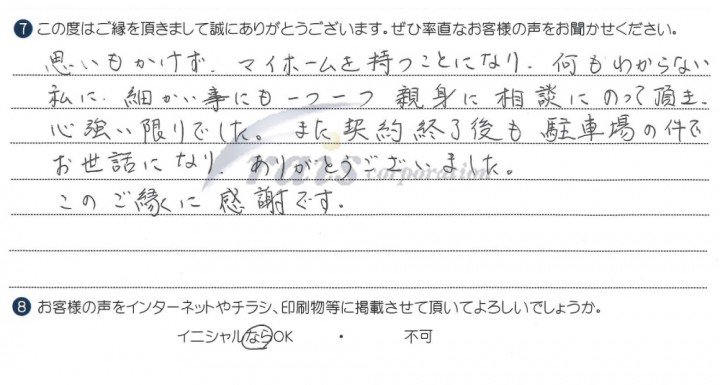 7 この度はご縁を頂きまして誠にありがとうございます。ぜひ率直なお客様の声をお聞かせください。
思いもかけず、マイホームを持つことになり、何もわからない
私に、細かい事にも一つ一つ親身に相談にのって頂き、
心強い限りでした。また契約終了後も駐車場の件で
お世話になり、ありがとうございました。
このご縁に感謝です。
corporation
8 お客様の声をインターネットやチラシ、印刷物等に掲載させて頂いてよろしいでしょうか。
イニシャルならOK ・ 不可